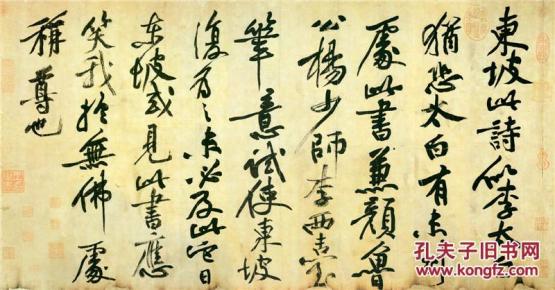 東坡此詩似李太白
猶恐太白有未到
處此書兼顏魯
公楊少師李西臺
筆意試使東坡
復為之未必及此它日
東坡或見此書應
笑我於無佛處
稱尊也
孔夫子旧书网
KONGFZ.COM